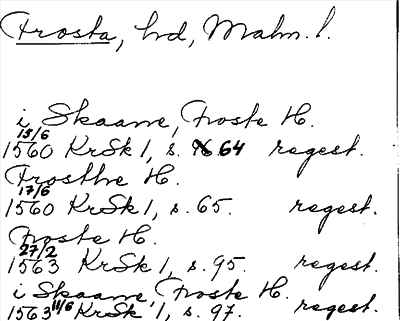 Frosta, hd, Malm. l.
i Skaane, Froste H.
15/6
1560 KrSk 1, s. 64 regest.
Frosthe H.
17/6
1560 KrSk 1, s. 65. regest.
Froste H.
27/2
1563 KrSk 1, s. 95. regest.
i Skaane, Froste H.
1563 11/6 KrSk 1, s. 97. regest.